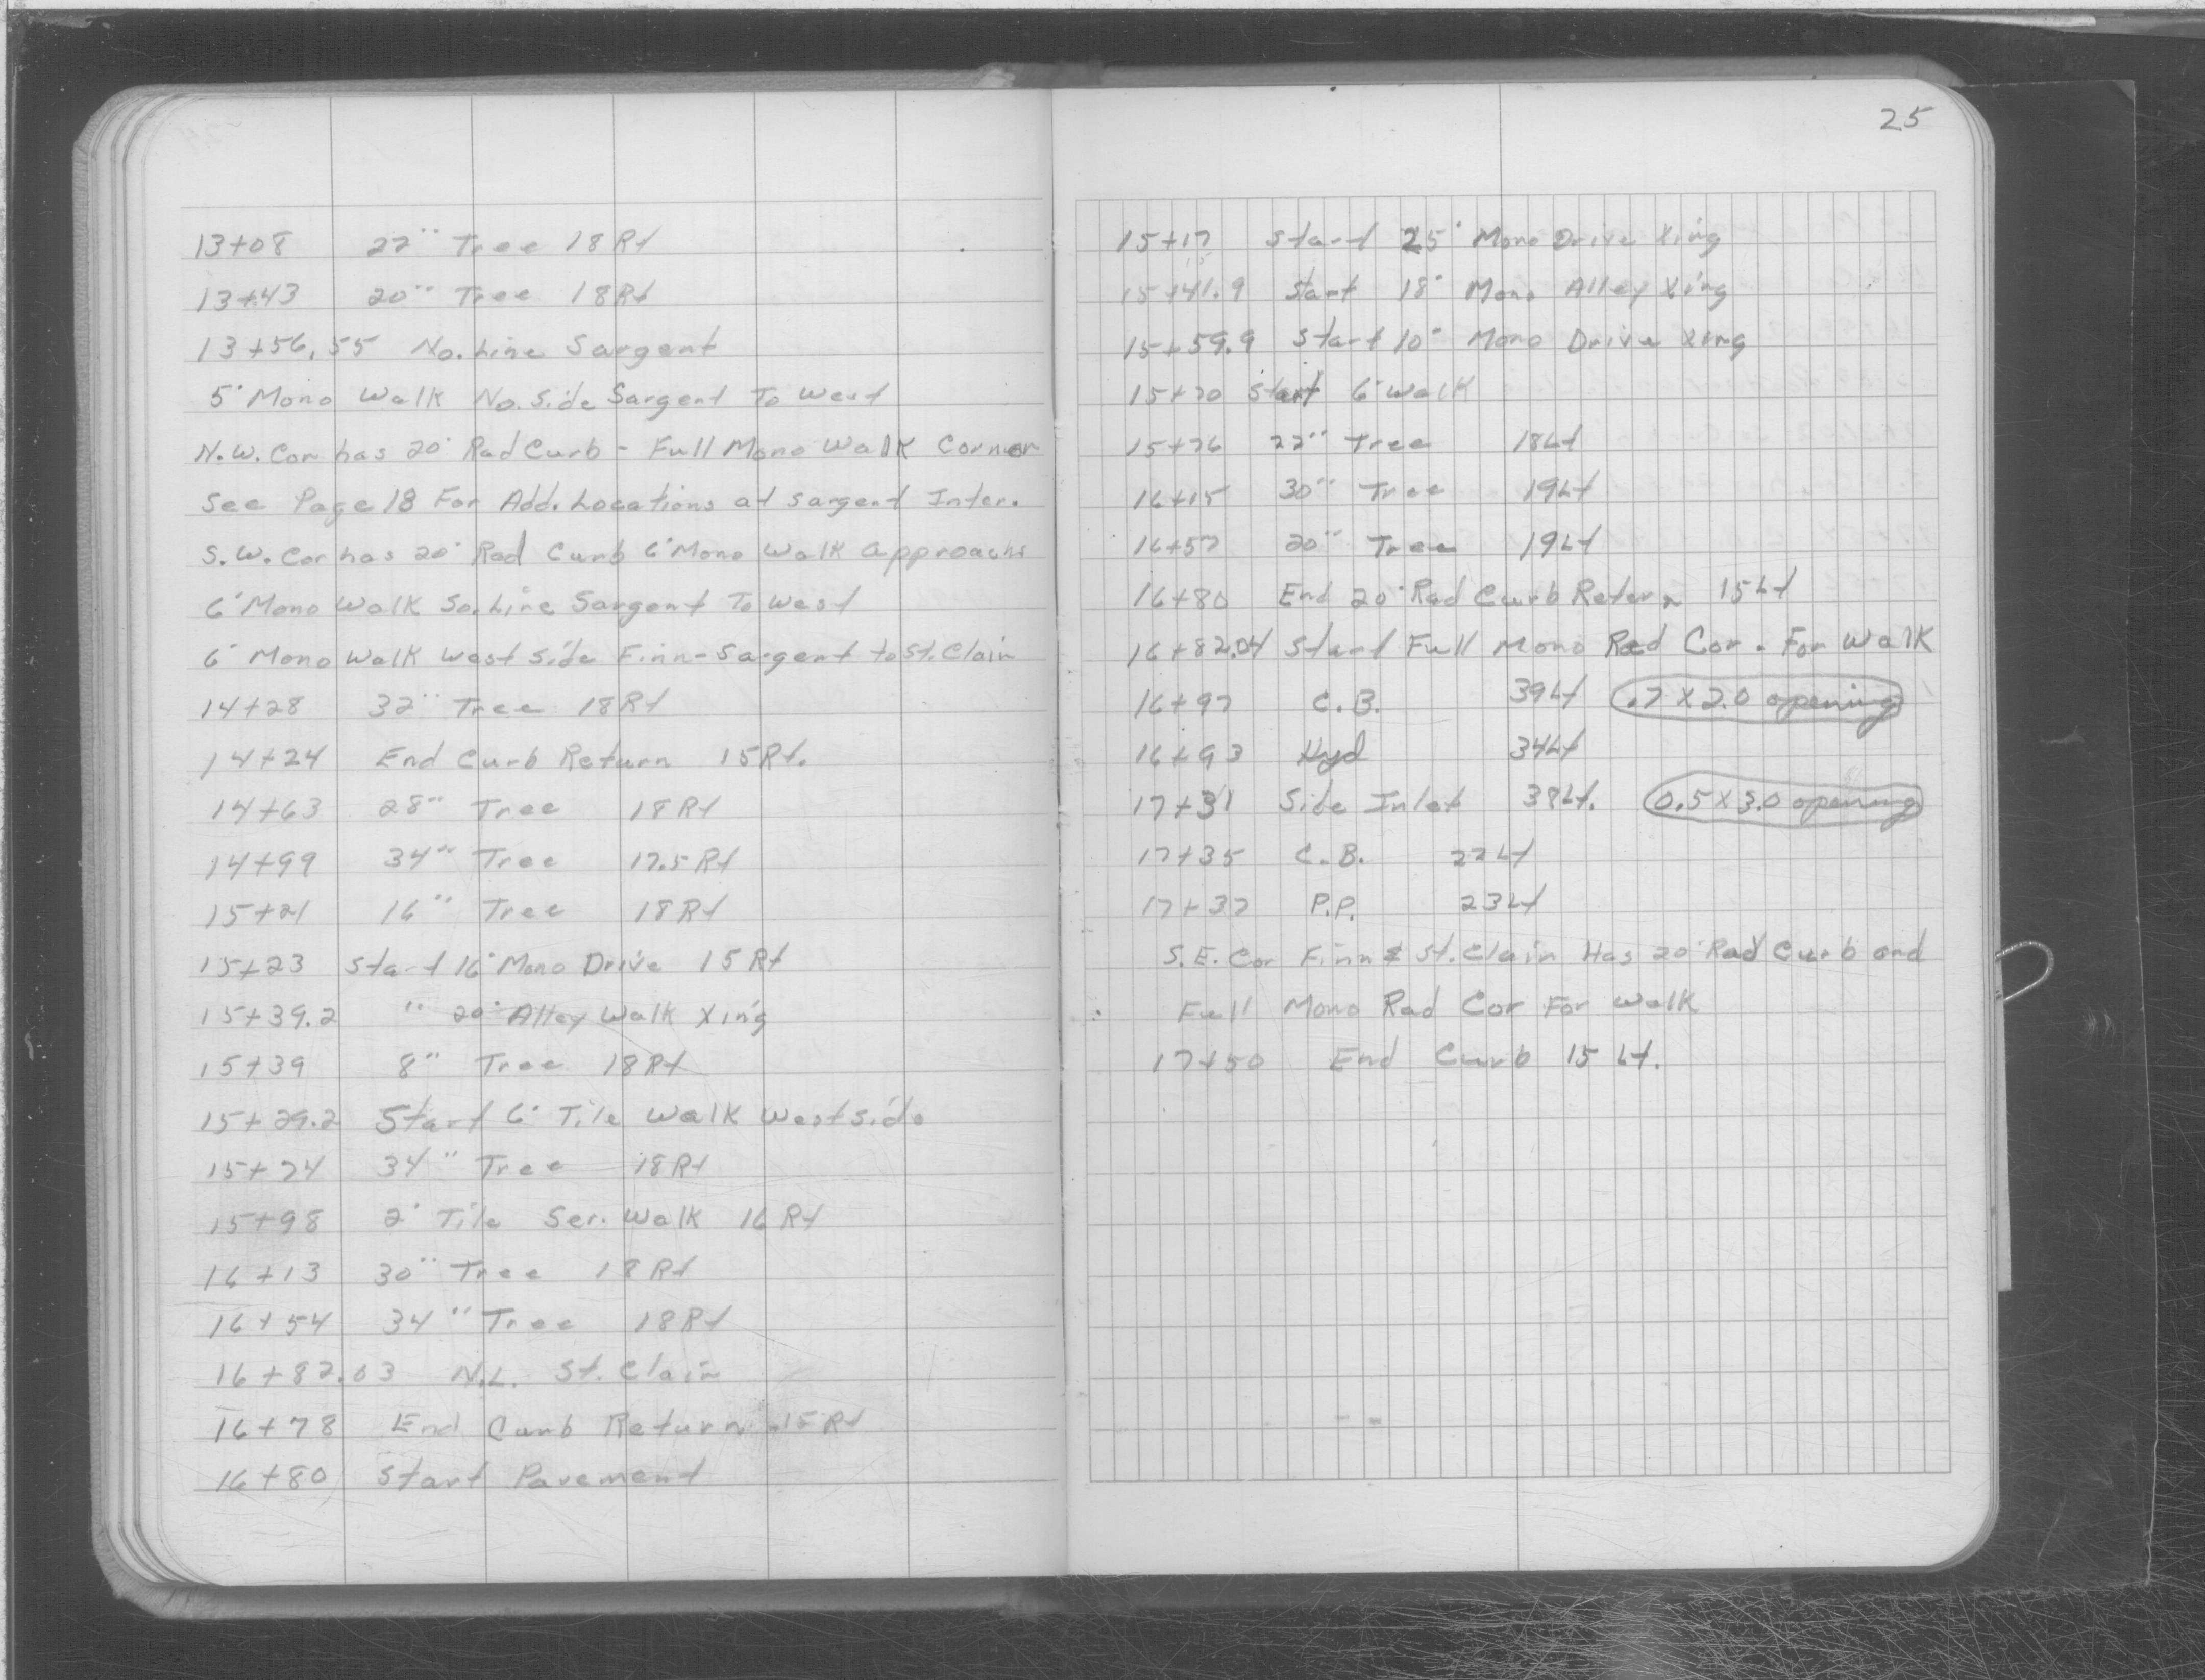 13+08 22" Tree 18 Rt
13+43 20" Tree 18Rt
13+56.55 No. Line Sargent
5' Mono Walk No. Side Sargent To West
N.W. Cor has 20' Rad Curb - Full Mono Walk Corner
See Page 18 For Add. Locations at Sargent Inter.
S.W. Cor has 20' Rad Curb 6' Mono Walk Approachs
6' Mono Walk So. Line Sargent To West
6' Mono Walk West Side Finn-Sargent to St. Clair
14+28 32" Tree 18Rt
14+24 End Curb Return 15Rt.
14+63 28" Tree 18 Rt
14+99 34" Tree 17.5 Rt
15+21 16" Tree 18 Rt
15+23 Start 16' Mono Drive 15 Rt
15+39.2 " 20' Alley Walk Xing
15+39 8" Tree 18 Rt
15+29.2 Start 6' Tile Walk West Side
15+74 34" Tree 18 Rt
15+98 2' Tile Ser. Walk 16 Rt
16+13 30" Tree 18 Rt
16+54 34" Tree 18 Rt
16+82.03 N.L. St. Clair
16+78 End Curb Return 15 Rt
16+80 Start Pavement
25
15+17 Start 25' Mono Drive Xing
15+41.9 Start 18' Mono Alley Xing
15+59.9 Start 10' Mono Drive Xing
15+70 Start 6' Walk
15+76 22" Tree 18Lt
16+15 30" Tree 19Lt
16+57 20" Tree 19Lt
16+80 End 20' Rad Curb Return 15Lt
16+82.04 Start Full Mono Rad Cor. For Walk
16+97 C.B. 39Lt .7 X 2.0 opening
16+93 Hyd 34Lt
17+31 Side Inlet 38Lt. 0.5 X 3.0 opening
17+35 C.B. 22Lt
17+37 P.P. 23Lt
S.E. Cor Finn & St. Clair Has 20' Rad Curb and
Full Mono Rad Cor For Walk
17+50 End Curb 15 Lt.